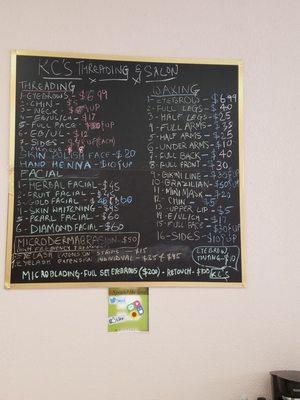 KC'S THREADING & SALON
THREADING
1-EYEBROWS - $6.99
2-CHIN - $5
3-NECK - UP
4-EB/U/L/CH - $17
5-FULL FACE - UP
6-EB/UL - $12
7-SIDES - UP (EACH)
SKIN POLISH FACE - $20
HAND HENNA - $10 F UP
FACIAL
1-HERBAL FACIAL - $45
2-FRUIT FACIAL - $45
3-GOLD FACIAL
4-SKIN WHITENING - $45
5-PEARL FACIAL - $60
6-DIAMOND FACIAL - $60
MICRODERMABRASION - $50
EYELASH EXTENSION STRIPS $15
EYELASH EXTENSION INDIVIDUAL - $25 & $45
MICROBLADING - FULL SET EYEBROWS ($200) - RETOUCH - $100
WAXING
1-EYEBROW - $6.99
2-FULL LEGS - $40
3-HALF LEGS - $25
4-FULL ARMS - $35
5-HALF ARMS - $25
6-UNDER ARMS - $10
7-FULL BACK - $40
8-FULL FRONT - $30
9-BIKINI LINE - $30 F UP
10-BRAZILIAN - UP
11-MINI MASK - $20
12-CHIN - $5
13-UPPER LIP - $5
14-E/U/L/CH - $17
15-FULL FACE - $30 F UP
16-SIDES - $10 F UP
EYEBROW
TINTING - $10
KC'S